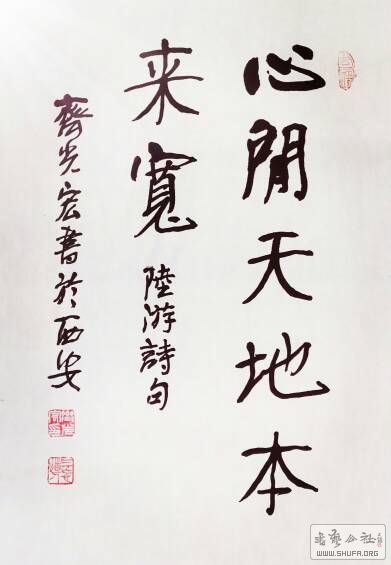 心閒天地本
来寬
陸游詩句
齊光宏書於西安
书艺公社
WWW.SHUFA.ORG